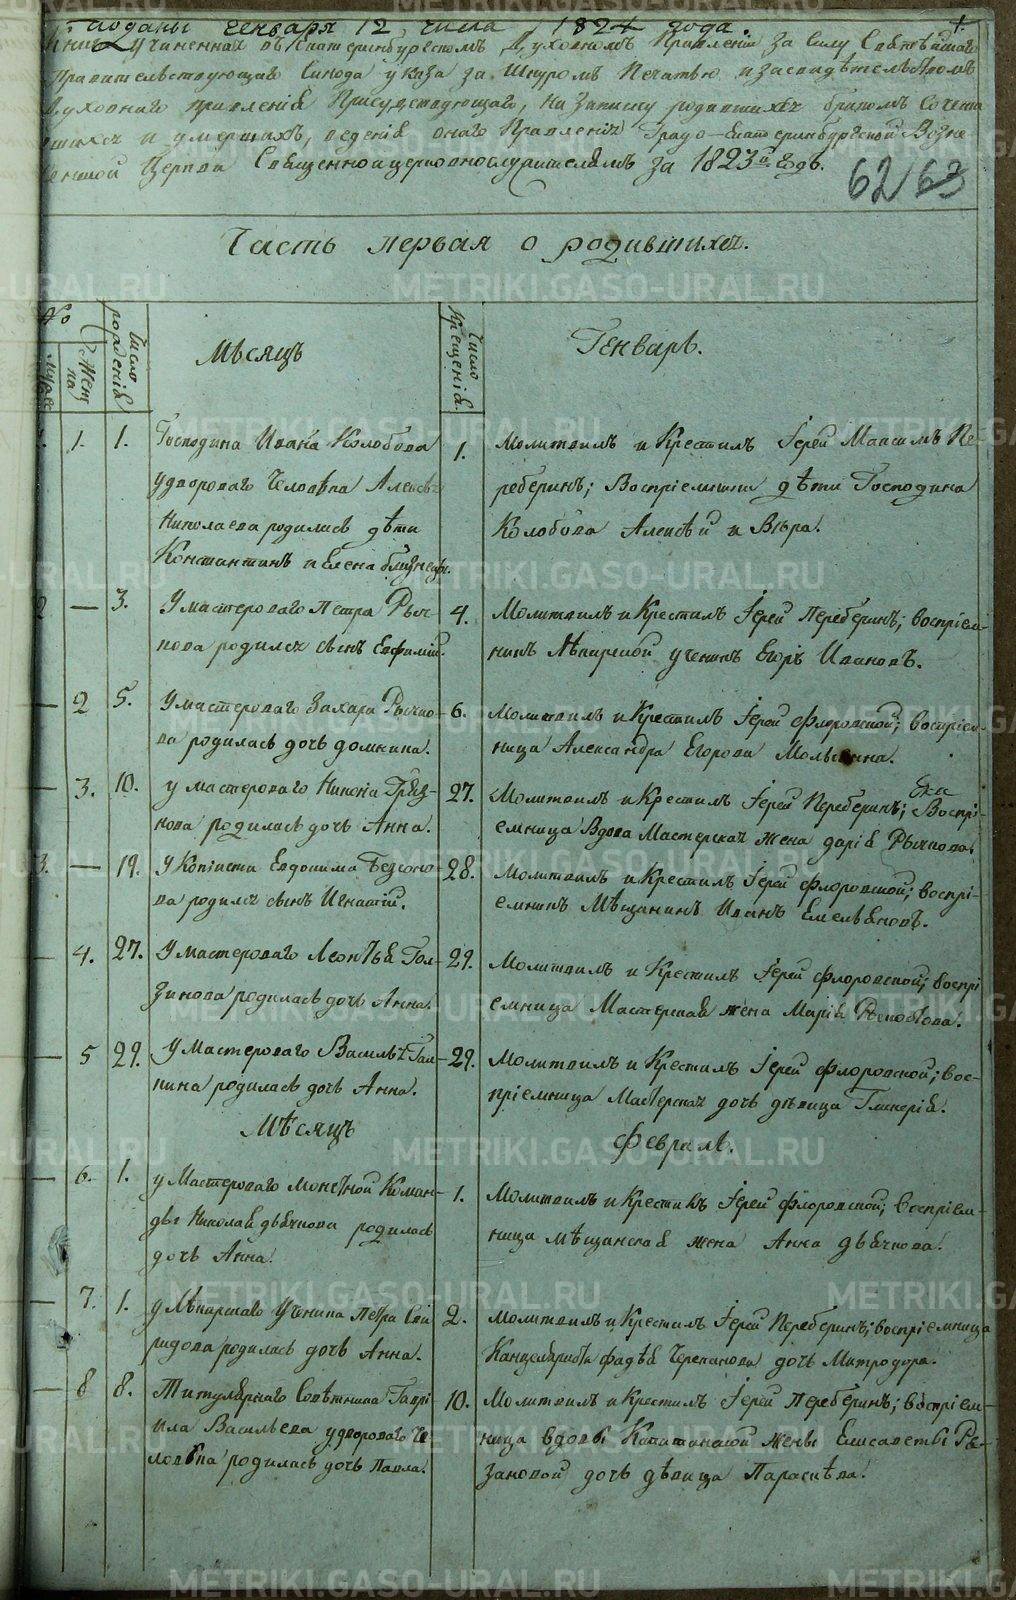 Поданы генваря 12 числа 1824 года. 1
Книга учиненная въ Екатеринбургскомъ Духовномъ Правленіи за силу Святѣйшаго
Правительствующаго Синода указа за Шнуромъ Печатью и засвидѣтельствомъ
Духовнаго правленія Присудствующаго, на записку родившихся бракомъ Сочета
вшихся и умершихъ, веденія онаго Правленія Градо-Екатеринбургской Возне
сенской Церкви Священноицерковнослужителямъ за 1823й Годъ.
62 63
Часть первая о родившихся.
№
муж. женска
число рожденія
Мѣсяцъ
число Крещенія
Генварь.
1. 1. Господина Ивана Колобова
удвороваго Человѣка Алексѣя
Николаева родились дѣти
Константинъ и Елена близнецы.
1. Молитвилъ и Крестилъ Іерей Максимъ Пе-
реберинъ; Воспріемники дѣти Господина
Колобова Алексѣй и Вѣра.
2 — 3. У мастероваго Петра Рыч-
кова родился сынъ Евфимій.
4. Молитвилъ и Крестилъ Іерей Переберинъ; воспріем-
никъ Лѣкарской ученикъ Егоръ Ивановъ.
— 2 5. У мастероваго Захара Рычко-
ва родилась дочь домнина.
6. Молитвилъ и Крестилъ Іерей Флоровской; воспріем-
ница Александра Егорова
— 3. 10. у мастероваго Никона Гряз-
нова родилась дочь Анна.
27. Молитвилъ и Крестилъ Іерей Переберинъ; Ея Воспрі-
емница Вдова Мастерская жена дарія Рычкова.
3. — 19. У Копіиста Евдокима Безсоно-
ва родился сынъ Игнатій.
28. Молитвилъ и Крестилъ Іерей Флоровской; воспрі-
емникъ Мѣщанинъ Иванъ Емельяновъ.
— 4. 27. У мастероваго Леонтья Гол-
Зинова родилась дочь Анна.
29. Молитвилъ и Крестилъ Іерей Флоровской; воспрі
емница Мастерская жена Марія
— 5 29. У Мастероваго Василья Гал-
кина родилась дочь Анна.
29. Молитвилъ и Крестилъ Іерей Флоровской; вос-
пріемница Мастерская дочь дѣвица Гликерія.
Мѣсяцъ Февраль.
— 6. 1. у Мастероваго монетной Коман-
ды Николая дьячкова родилась
дочь Анна.
1. Молитвилъ и Крестилъ Іерей Флоровской; воспріем-
ница мѣщанская жена Анна дьячкова.
— 7. 1. у Лѣкарскаго Ученика Петра Спи
ридова родилась дочь Анна.
2. молитвилъ и Крестилъ Іерей Переберинъ; воспріемница
Канцеляриста фадѣя Черепанова дочь Митродора.
— 8 8. Титулярнаго Совѣтника Гаврі
ила Васильева удвороваго Че
ловѣка родилась дочь Павла.
10. Молитвилъ и Крестилъ Іерей Переберинъ; воспріем-
ница вдовы Капитанской жены Елисаветы Ре-
зановой дочь дѣвица Параскѣва.
METRIKI.GASO-URAL.RU